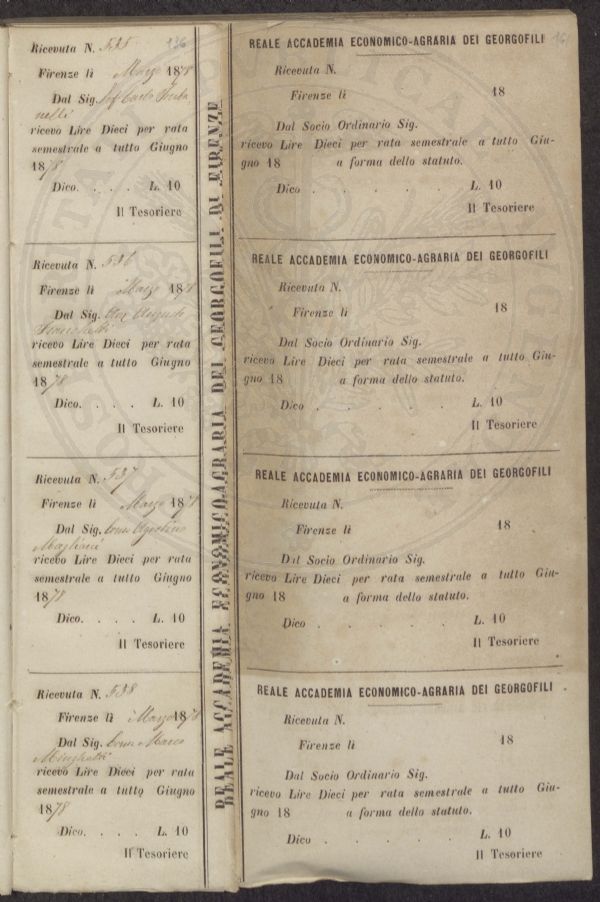 Ricevuta N. 535 136
Firenze li Marzo 1878
Dal Sig. Prof Carlo
nelli
ricevo Lire Dieci per rata
semestrale a tutto Giugno
1878
Dico. . . . L. 10
Il Tesoriere
Ricevuta N. 536
Firenze li Marzo 1878
Dal Sig. Augusto
Franchetti
ricevo Lire Dieci per rata
semestrale a tutto Giugno
1878
Dico. . . . L. 10
Il Tesoriere
Ricevuta N. 537
Firenze li Marzo 1878
Dal Sig. Comm Agostino
Magliani
ricevo Lire Dieci per rata
semestrale a tutto Giugno
1878
Dico. . . . L. 10
Il Tesoriere
Ricevuta N. 538
Firenze li Marzo 1878
Dal Sig. Comm Marco
Minghetti
ricevo Lire Dieci per rata
semestrale a tutto Giugno
1878
Dico. . . . L. 10
Il Tesoriere
REALE ACCADEMIA ECONOMICO-AGRARIA DEI GEORGOFILI DI FIRENZE
REALE ACCADEMIA ECONOMICO-AGRARIA DEI GEORGOFILI
Ricevuta N.
Firenze li 18
Dal Socio Ordinario Sig.
ricevo Lire Dieci per rata semestrale a tutto Giu-
gno 18 a forma dello statuto.
Dico . . . . L. 10
Il Tesoriere
REALE ACCADEMIA ECONOMICO-AGRARIA DEI GEORGOFILI
Ricevuta N.
Firenze li 18
Dal Socio Ordinario Sig.
ricevo Lire Dieci per rata semestrale a tutto Giu-
gno 18 a forma dello statuto.
Dico . . . . L. 10
Il Tesoriere
REALE ACCADEMIA ECONOMICO-AGRARIA DEI GEORGOFILI
Ricevuta N.
Firenze li 18
Dal Socio Ordinario Sig.
ricevo Lire Dieci per rata semestrale a tutto Giu-
gno 18 a forma dello statuto.
Dico . . . . L. 10
Il Tesoriere
REALE ACCADEMIA ECONOMICO-AGRARIA DEI GEORGOFILI
Ricevuta N.
Firenze li 18
Dal Socio Ordinario Sig.
ricevo Lire Dieci per rata semestrale a tutto Giu-
gno 18 a forma dello statuto.
Dico . . . . L. 10
Il Tesoriere